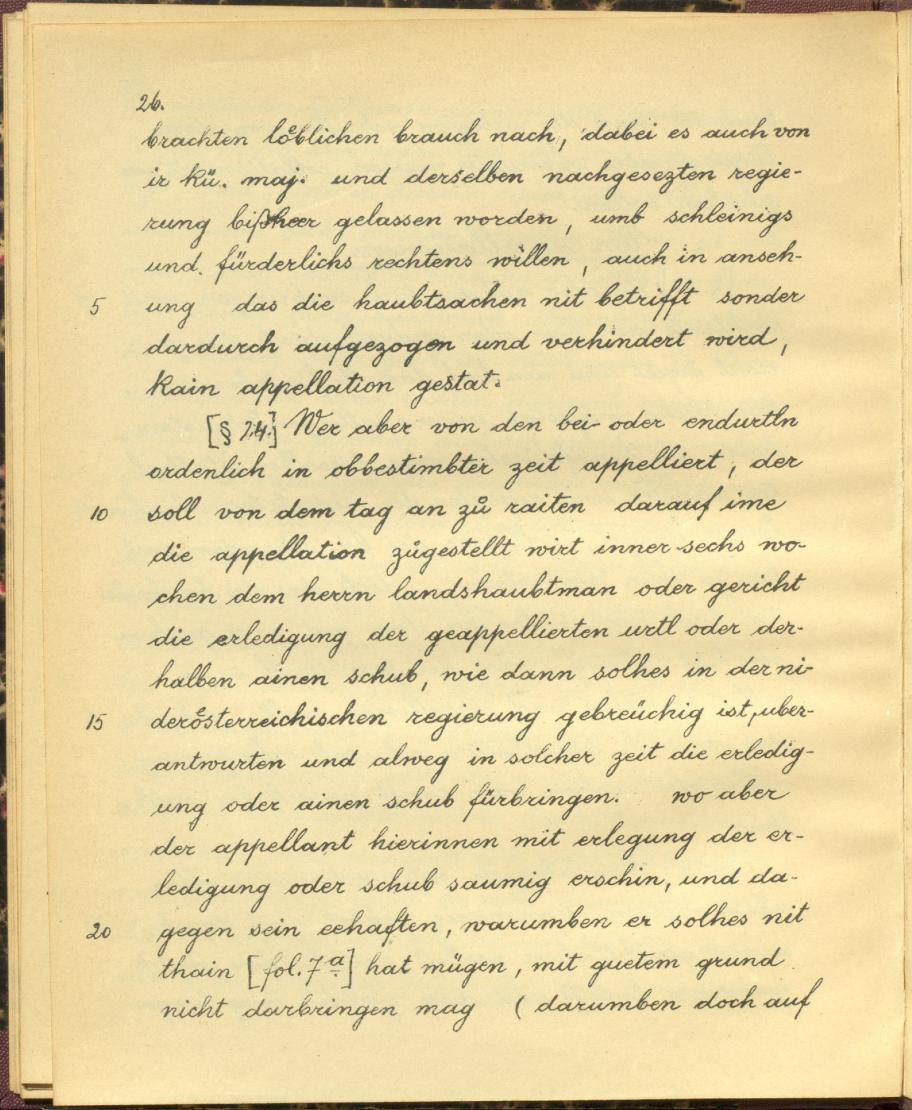 26.
brachten loͤblichen brauch nach, dabei es auch von
ir kü. maj. und derselben nachgesezten regie-
rung bißheer gelassen worden, umb schleinigs
und fürderlichs rechtens willen, auch in anseh-
5 ung das die haubtsachen nit betrifft sonder
dardurch aufgezogen und verhindert wird,
kain appellation gestat.
[§ 24.] Wer aber von den bei- oder endurtln
ordenlich in obbestimbter zeit appelliert, der
10 soll von dem tag an zů raiten darauf ime
die appellation zůgestellt wirt inner sechs wo-
chen dem herrn landshaubtman oder gericht
die erledigung der geappellierten urtl oder der-
halben ainen schub, wie dann solhes in der ni-
15 deroͤsterreichischen regierung gebreüchig ist, uber-
antwurten und alweg in solcher zeit die erledig-
ung oder ainen schub fürbringen. wo aber
der appellant hierinnen mit erlegung der er-
ledigung oder schub saumig erschin, und da-
20 gegen sein eehaften, warumben er solhes nit
thain [fol. 7a] hat mügen, mit guetem grund
nicht darbringen mag (darumben doch auf